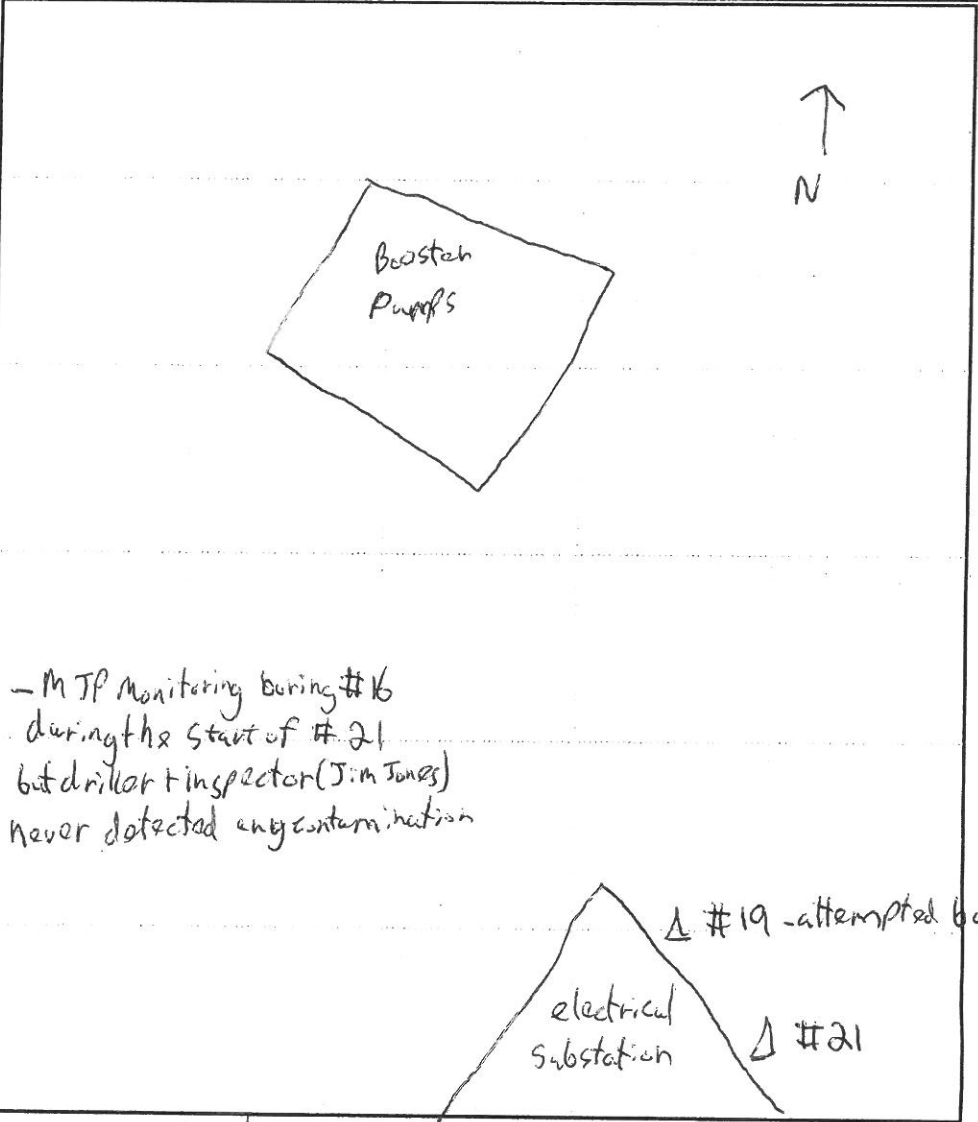 N
Booster
Pumps
- MJP Monitoring boring #16
during the start of #21
but driller + inspector (Jim Jones)
never detected any contamination
#19 - attempted bo
electrical
substation
#21